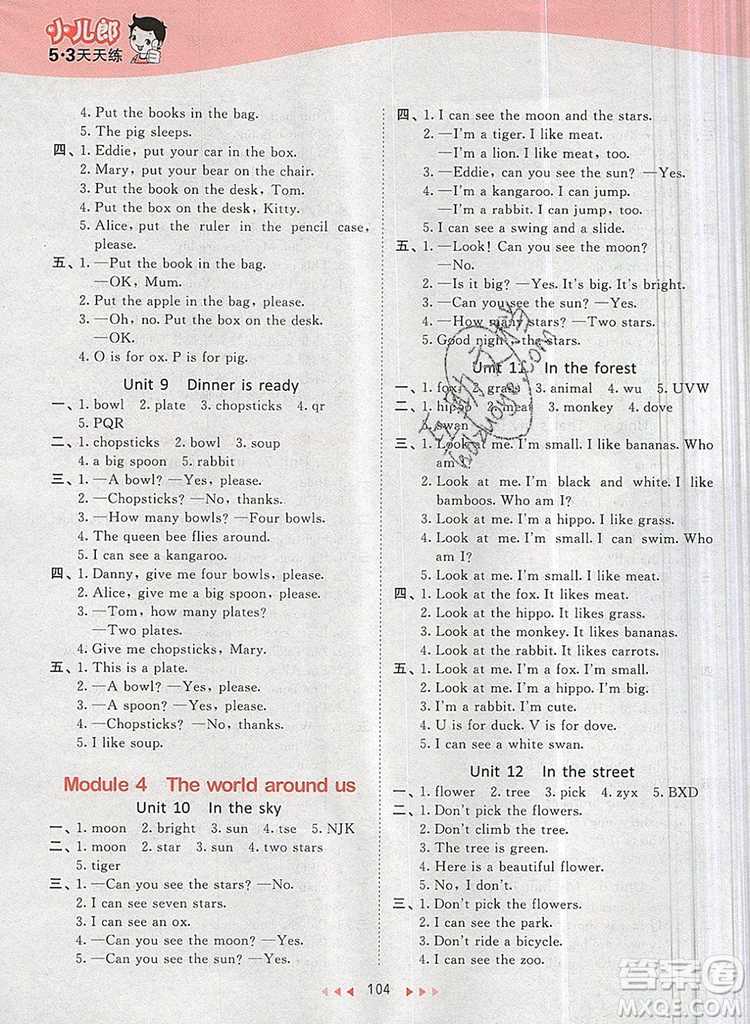 小儿郎
5·3天天练
4. Put the books in the bag.
5. The pig sleeps.
四、1. Eddie, put your car in the box.
2. Mary, put your bear on the chair.
3. Put the book on the desk, Tom.
4. Put the box on the desk, Kitty.
5. Alice, put the ruler in the pencil case,
please.
五、1. —Put the book in the bag.
—OK, Mum.
2. Put the apple in the bag, please.
3. —Oh, no. Put the book on the desk.
—OK.
4. O is for ox. P is for pig.
Unit 9 Dinner is ready
一、1. bowl 2. plate 3. chopsticks 4. qr
5. PQR
二、1. chopsticks 2. bowl 3. soup
4. a big spoon 5. rabbit
三、1. —A bowl? —Yes, please.
2. —Chopsticks? —No, thanks.
3. —How many bowls? —Four bowls.
4. The queen bee flies around.
5. I can see a kangaroo.
四、1. Danny, give me four bowls, please.
2. Alice, give me a big spoon, please.
3. —Tom, how many plates?
—Two plates.
4. Give me chopsticks, Mary.
五、1. This is a plate.
2. —A bowl? —Yes, please.
3. —A spoon? —Yes, please.
4. —Chopsticks? —No, thanks.
5. I like soup.
Module 4 The world around us
Unit 10 In the sky
一、1. moon 2. bright 3. sun 4. tse 5. NJK
二、1. moon 2. star 3. sun 4. two stars
5. tiger
三、1. —Can you see the stars? —No.
2. I can see seven stars.
3. I can see an ox.
4. —Can you see the moon? —Yes.
5. —Can you see the sun? —Yes.
四、1. I can see the moon and the stars.
2. —I'm a tiger. I like meat.
—I'm a lion. I like meat, too.
3. —Eddie, can you see the sun? —Yes.
4. —I'm a kangaroo. I can jump.
—I'm a rabbit. I can jump, too.
5. I can see a swing and a slide.
五、1. —Look! Can you see the moon?
—No.
2. —Is it big? —Yes. It's big. It's bright.
3. —Can you see the sun? —Yes.
4. —How many stars? —Two stars.
5. Good night, the stars.
Unit 11 In the forest
一、1. fox 2. grass 3. animal 4. wu 5. UVW
二、1. hippo 2. meat 3. monkey 4. dove
5. swan
三、1. Look at me. I'm small. I like bananas. Who
am
2. Look at me. I'm black and white. I like
bamboos. Who am I?
3. Look at me. I'm a hippo. I like grass.
4. Look at me. I'm small. I can swim. Who
am I?
5. Look at me. I'm small. I like meat.
四、1. Look at the fox. It likes meat.
2. Look at the hippo. It likes grass.
3. Look at the monkey. It likes bananas.
4. Look at the rabbit. It likes carrots.
五、1. Look at me. I'm a fox. I'm small.
2. Look at me. I'm a hippo. I'm big.
3. I'm a rabbit. I'm cute.
4. U is for duck. V is for dove.
5. I can see a white swan.
Unit 12 In the street
一、1. flower 2. tree 3. pick 4. zyx 5. BXD
二、1. Don't pick the flowers.
2. Don't climb the tree.
3. The tree is green.
4. Here is a beautiful flower.
5. No, I don't.
三、1. Don't pick the flowers.
2. I can see the park.
3. Don't ride a bicycle.
4. I can see the zoo.
104
答案圈
MXQE.COM